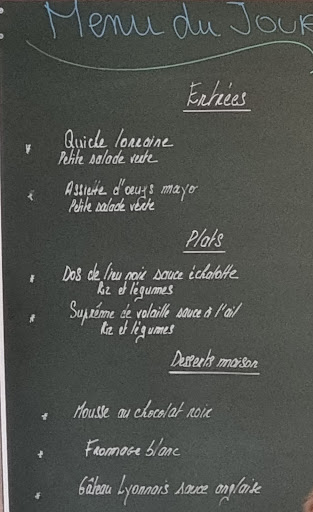 Menu du Jour
Entrées
* Quiche lorraine
Petite salade verte
* Assiette d'oeufs mayo
Petite salade verte
Plats
* Dos de lieu noir sauce échalotte
Riz et légumes
* Suprême de volaille sauce à l'ail
Riz et légumes
Desserts maison
* Mousse au chocolat noir
* Fromage blanc
* Gâteau Lyonnais sauce anglaise